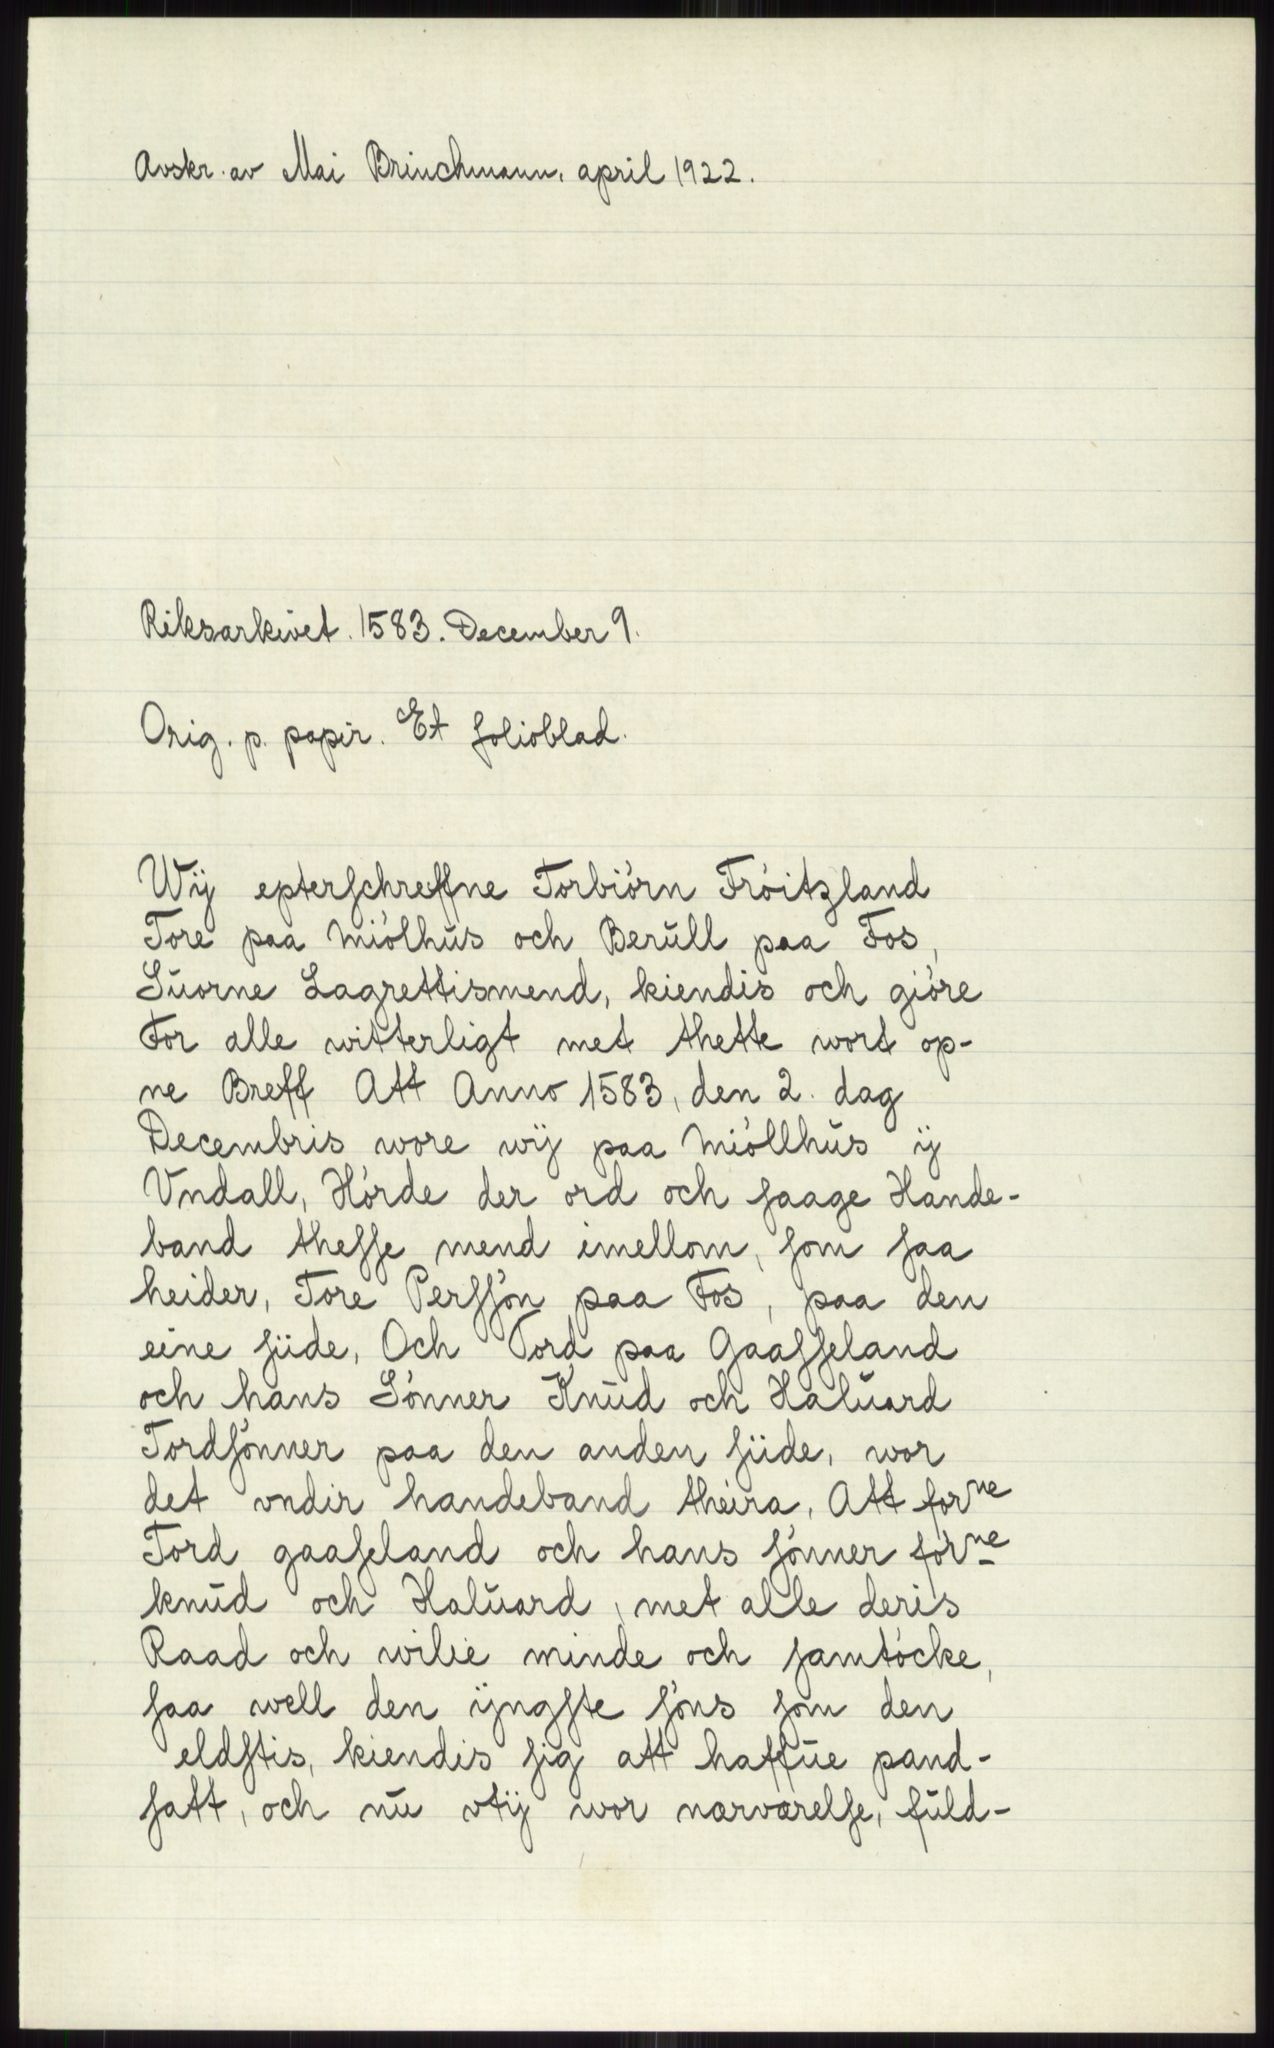 Avskr. av Mai Brinchmann, april 1922.
Riksarkivet. 1583. December 9.
Orig. p. papir. Et folioblad.
Wij epterschreffne Torbiórn Tróitzland
Tore paa Miólhus och Berúll paa Fos,
Súorne Lagrettismend, kiendis och gióre
For alle witterligt met thette wort op-
ne Breff Att Anno 1583, den 2. dag
Decembris wore wij paa Mióllhús ij
Vndall, Hórde der ord och saage Hande-
band thesse mend imellom, som saa
heider, Tore Perssón paa Fos, paa den
eine siide, Och Tord paa Gaasseland
och hans Sónner Knúd och Halúard
Tordsónner paa den anden siide, wor
det vndir handeband theira, Att forne
Tord gaaseland och hans sónner forne
knúd och Halúard, met alle deris
Raad och wilie minde och samtócke,
saa well den ijngste sóns som den
eldstis, kiendis sig att haffúe pand-
satt, och nú vtij wor nærværelse, fúld-